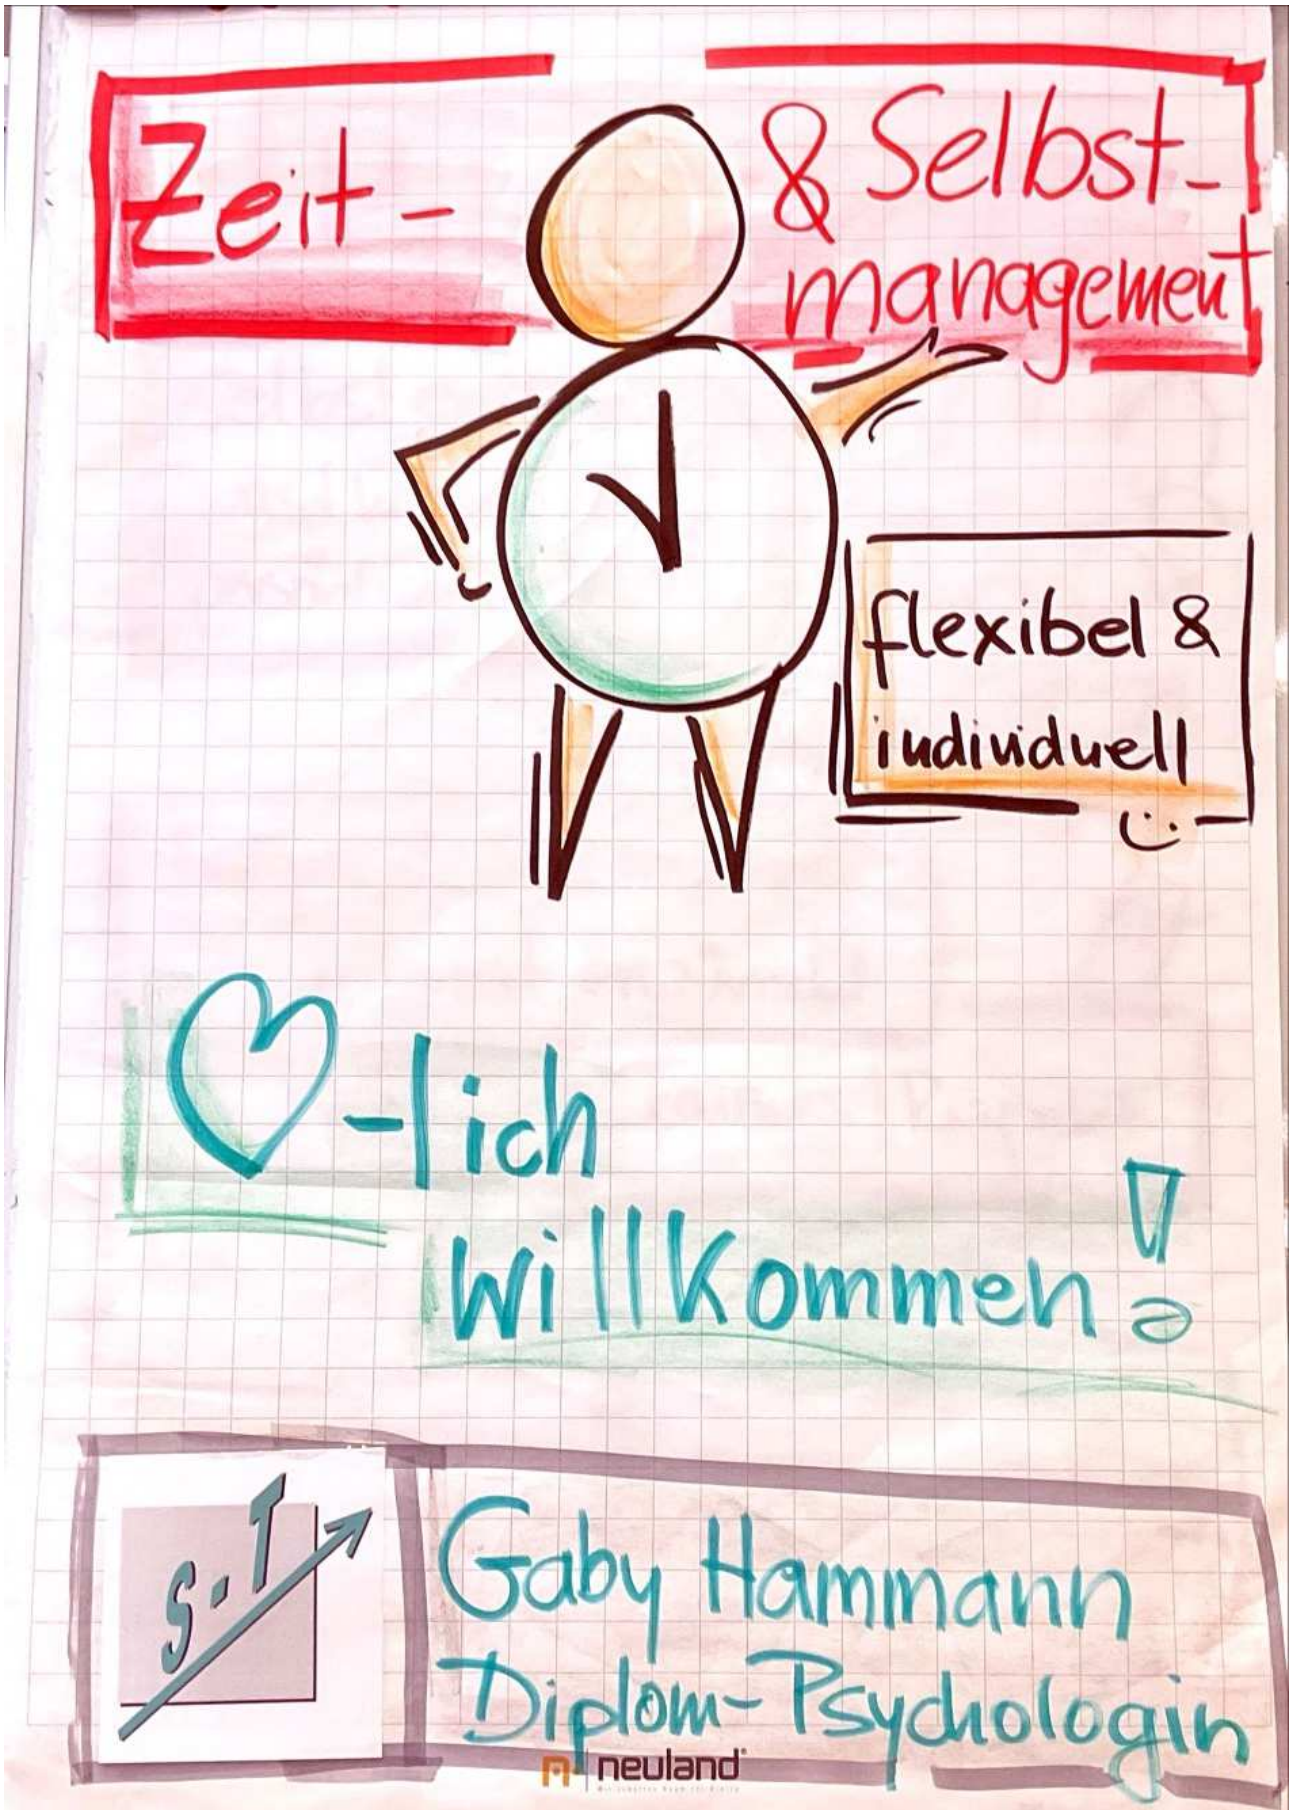 Zeit- & Selbst-
management
flexibel &
individuell
♡-lich
Willkommen!
S-T
Gaby Hammann
Diplom-Psychologin
neuland